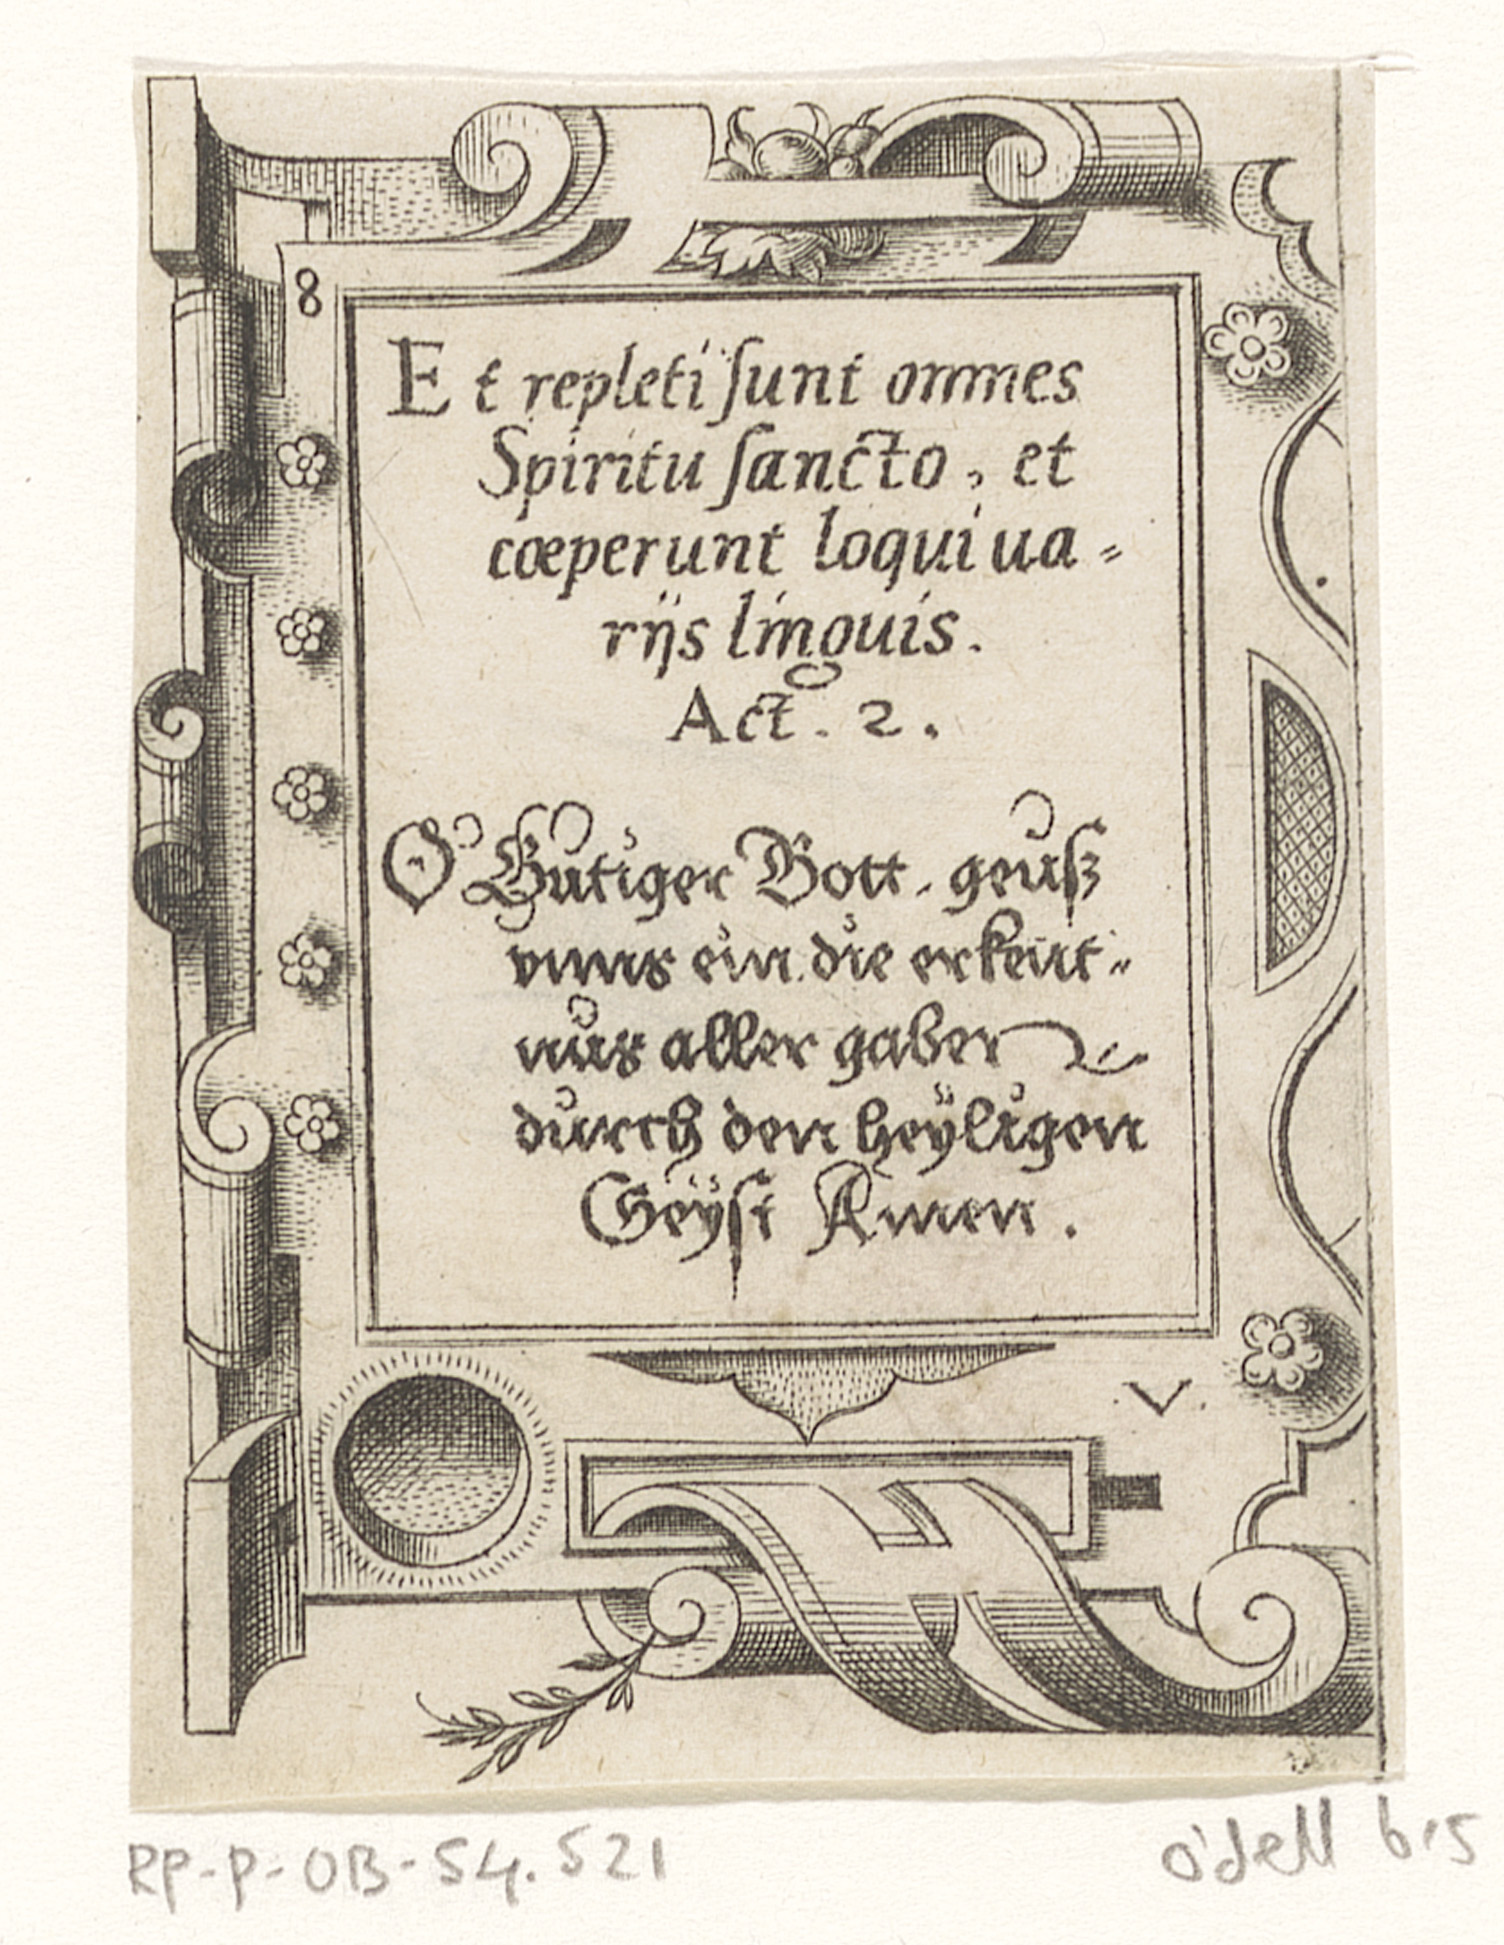 8
Et repleti ſunt omnes
Spiritu ſancto, et
cœperunt loqui ua=
rijs linguis.
Act. 2.
O Gütiger Gott, geuß
vnns ein die erkent=
nus aller gaben
durch den heÿligen
Geÿſt Amen.
V.
RP-P-OB-54.521
O'dell b15